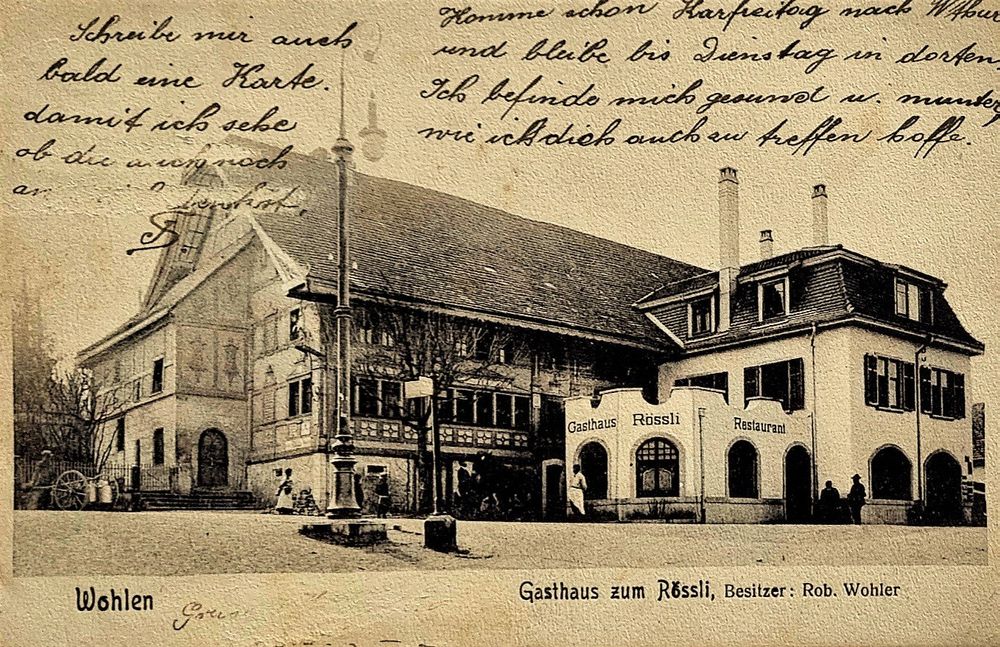 Schreibe mir auch
bald eine Karte.
damit ich sehe
ob du auch noch
Komme schon Karfreitag nach Wthur
und bleibe bis Dienstag in dorten,
Ich befinde mich gesund u. munter
wie ich dich auch zu treffen hoffe.
Gasthaus Rössli Restaurant
Wohlen
Gasthaus zum Rössli, Besitzer: Rob. Wohler